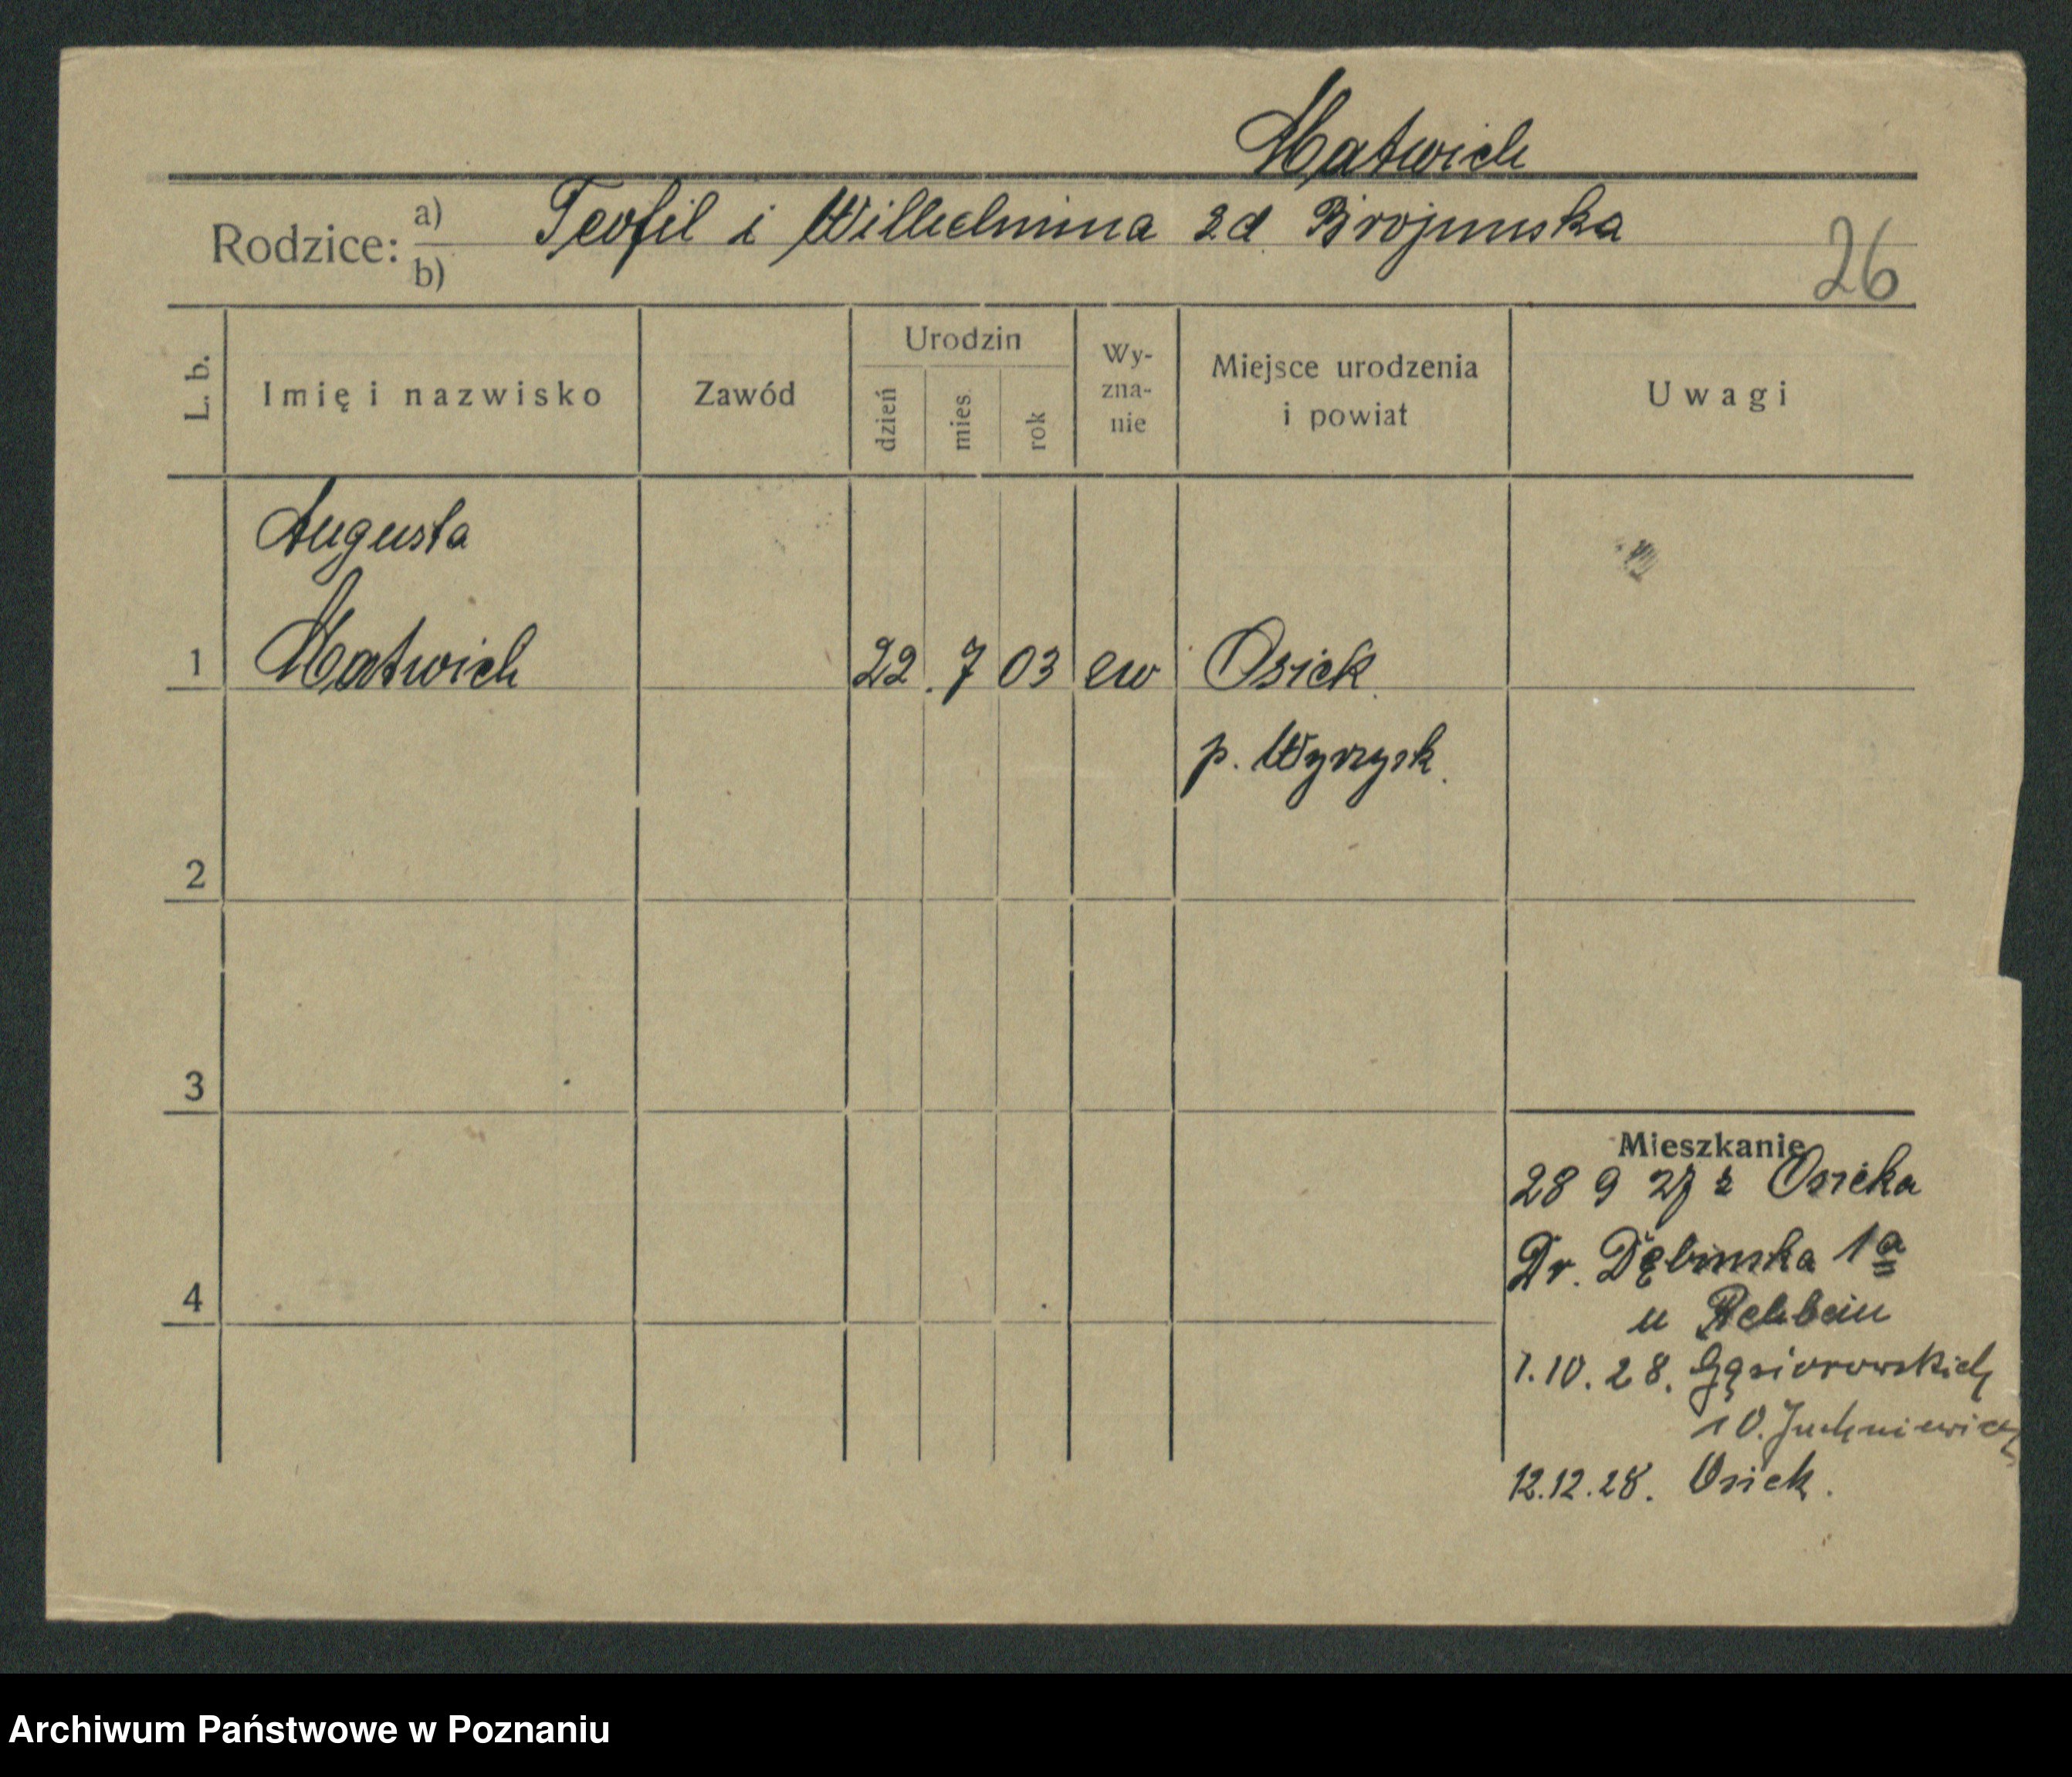 Matwich
Rodzice: a) b) Teofil i Wilhelmina zd.
26
L. b.
Imię i nazwisko
Zawód
Urodzin
dzień
mies.
rok
Wy-
zna-
nie
Miejsce urodzenia
i powiat
Uwagi
Augusta
1 Matwich 22. 7 03 ew Osiek
p. Wyrzysk.
2
3
4
Mieszkanie
28 9 27 z Osieka
Dr. Dębinska 1a
u Rehbein
1.10.28. Gąsiorowskich
10. Juchniewicz
12.12.28. Osiek.
Archiwum Państwowe w Poznaniu